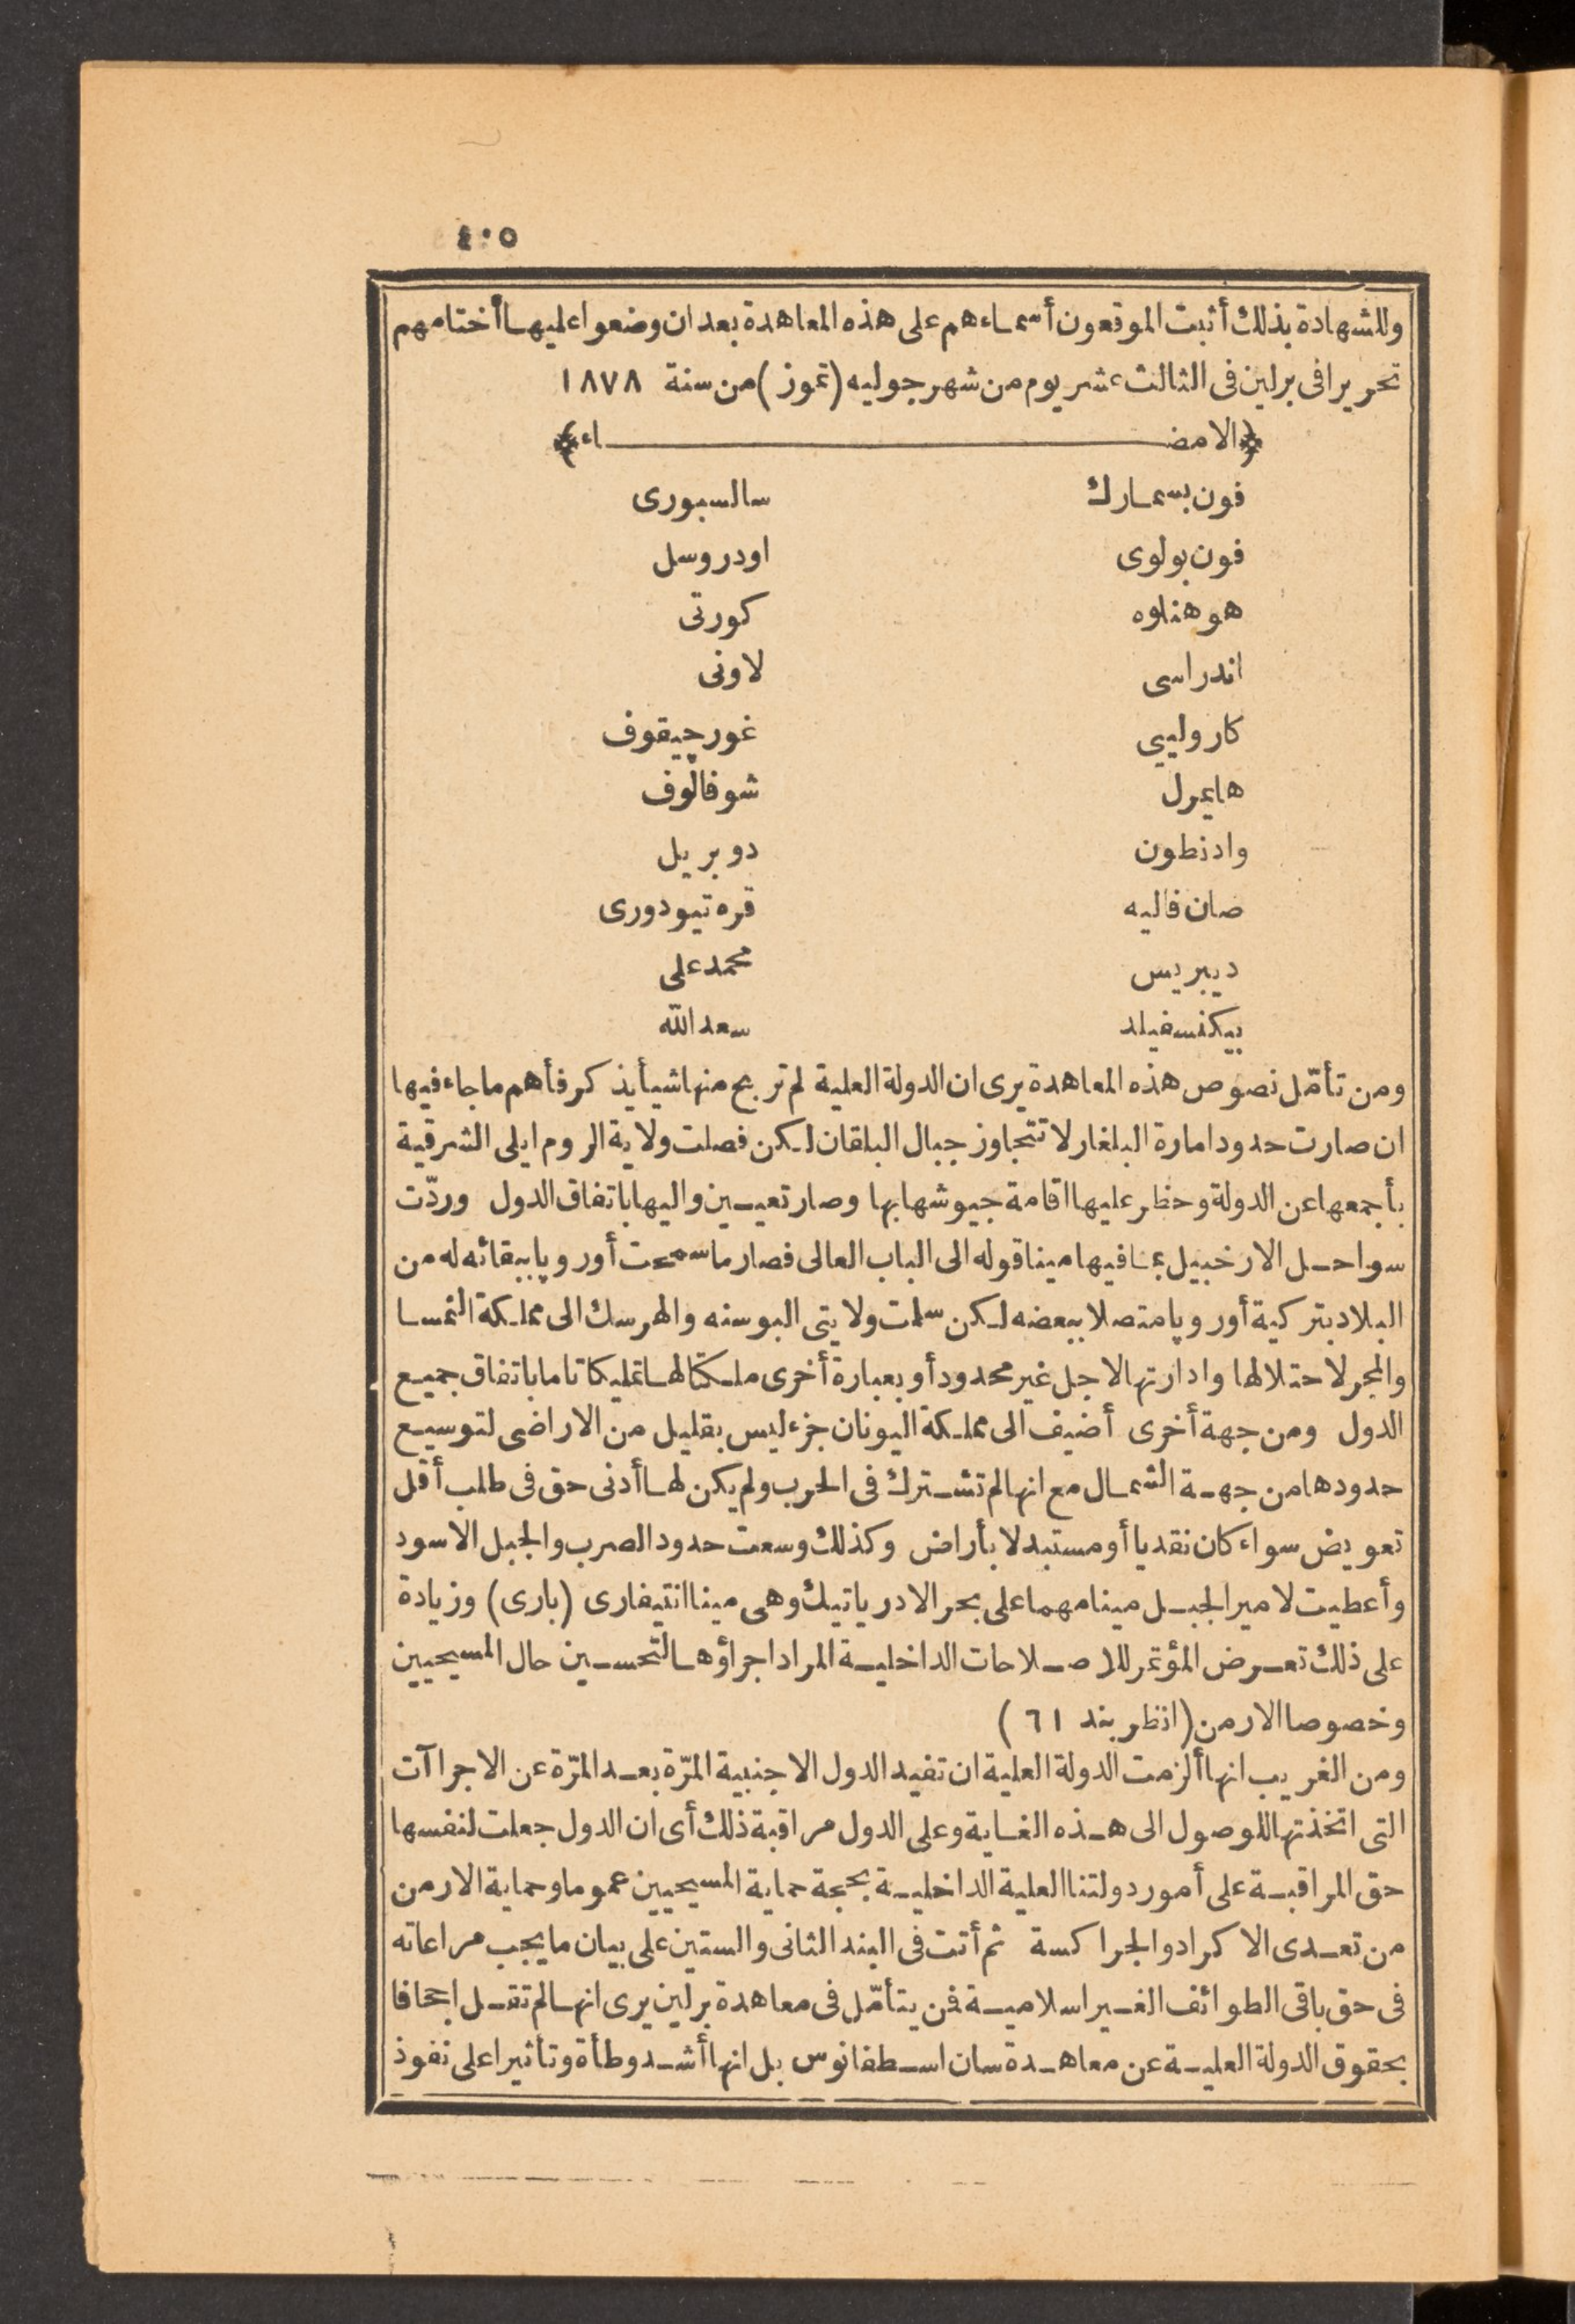 ٤٠٥
وللشهادة بذلك أثبت الموقعون أسماءهم على هذه المعاهدة بعد ان وضعوا عليها أختامهم
تحريرا فى برلين فى الثالث عشر يوم من شهر جوليه (تموز) من سنة ١٨٧٨
﴿الامضاء﴾
فون بسمارك سالسبورى
فون بولوى اودروسل
هوهنلوه كورتى
اندراسى لاونى
كارولىي غورچيقوف
هايمرل شوفالوف
وادنطون دوبريل
صان فاليه قره تيودورى
ديبريس محمد على
بيكنسفيلد سعد الله
ومن تأمّل نصوص هذه المعاهدة يرى ان الدولة العلية لم تربح منها شيأ يذكر فأهم ما جاء فيها
ان صارت حدود امارة البلغار لا تتجاوز جبال البلقان لكن فصلت ولاية الروم ايلى الشرقية
بأجمعها عن الدولة وحظر عليها اقامة جيوشها بها وصار تعيين واليها باتفاق الدول وردّت
سواحل الارخبيل بما فيها مينا قوله الى الباب العالى فصار ما سمحت أوروپا ببقائه له من
البلاد بتركية أوروپا متصلا ببعضه لكن سلمت ولايتى البوسنه والهرسك الى مملكة النمسا
والمجر لاحتلالها وادارتها لاجل غير محدود أو بعبارة أخرى ملكتا لها تمليكا تاما باتفاق جميع
الدول ومن جهة أخرى أضيف الى مملكة اليونان جزء ليس بقليل من الاراضى لتوسيع
حدودها من جهة الشمال مع انها لم تشترك فى الحرب ولم يكن لها أدنى حق فى طلب أقل
تعويض سواء كان نقديا أو مستبدلا بأراض وكذلك وسعت حدود الصرب والجبل الاسود
وأعطيت لامير الجبل مينا مهما على بحر الادرياتيك وهى مينا انتيفارى (بارى) وزيادة
على ذلك تعرض المؤتمر للاصلاحات الداخلية المراد اجراؤها لتحسين حال المسيحيين
وخصوصا الارمن (انظر بند ٦١)
ومن الغريب انها ألزمت الدولة العلية ان تفيد الدول الاجنبية المرّة بعد المرّة عن الاجراآت
التى اتخذتها للوصول الى هذه الغاية وعلى الدول مراقبة ذلك أى ان الدول جعلت لنفسها
حق المراقبة على أمور دولتنا العلية الداخلية بحجة حماية المسيحيين عموما وحماية الارمن
من تعدى الاكراد والجراكسة ثم أتت فى البند الثانى والستين على بيان ما يجب مراعاته
فى حق باقى الطوائف الغير اسلامية فمن يتأمّل فى معاهدة برلين يرى انها لم تقل اجحافا
بحقوق الدولة العلية عن معاهدة سان اسطفانوس بل انها أشد وطأة وتأثيرا على نفوذ